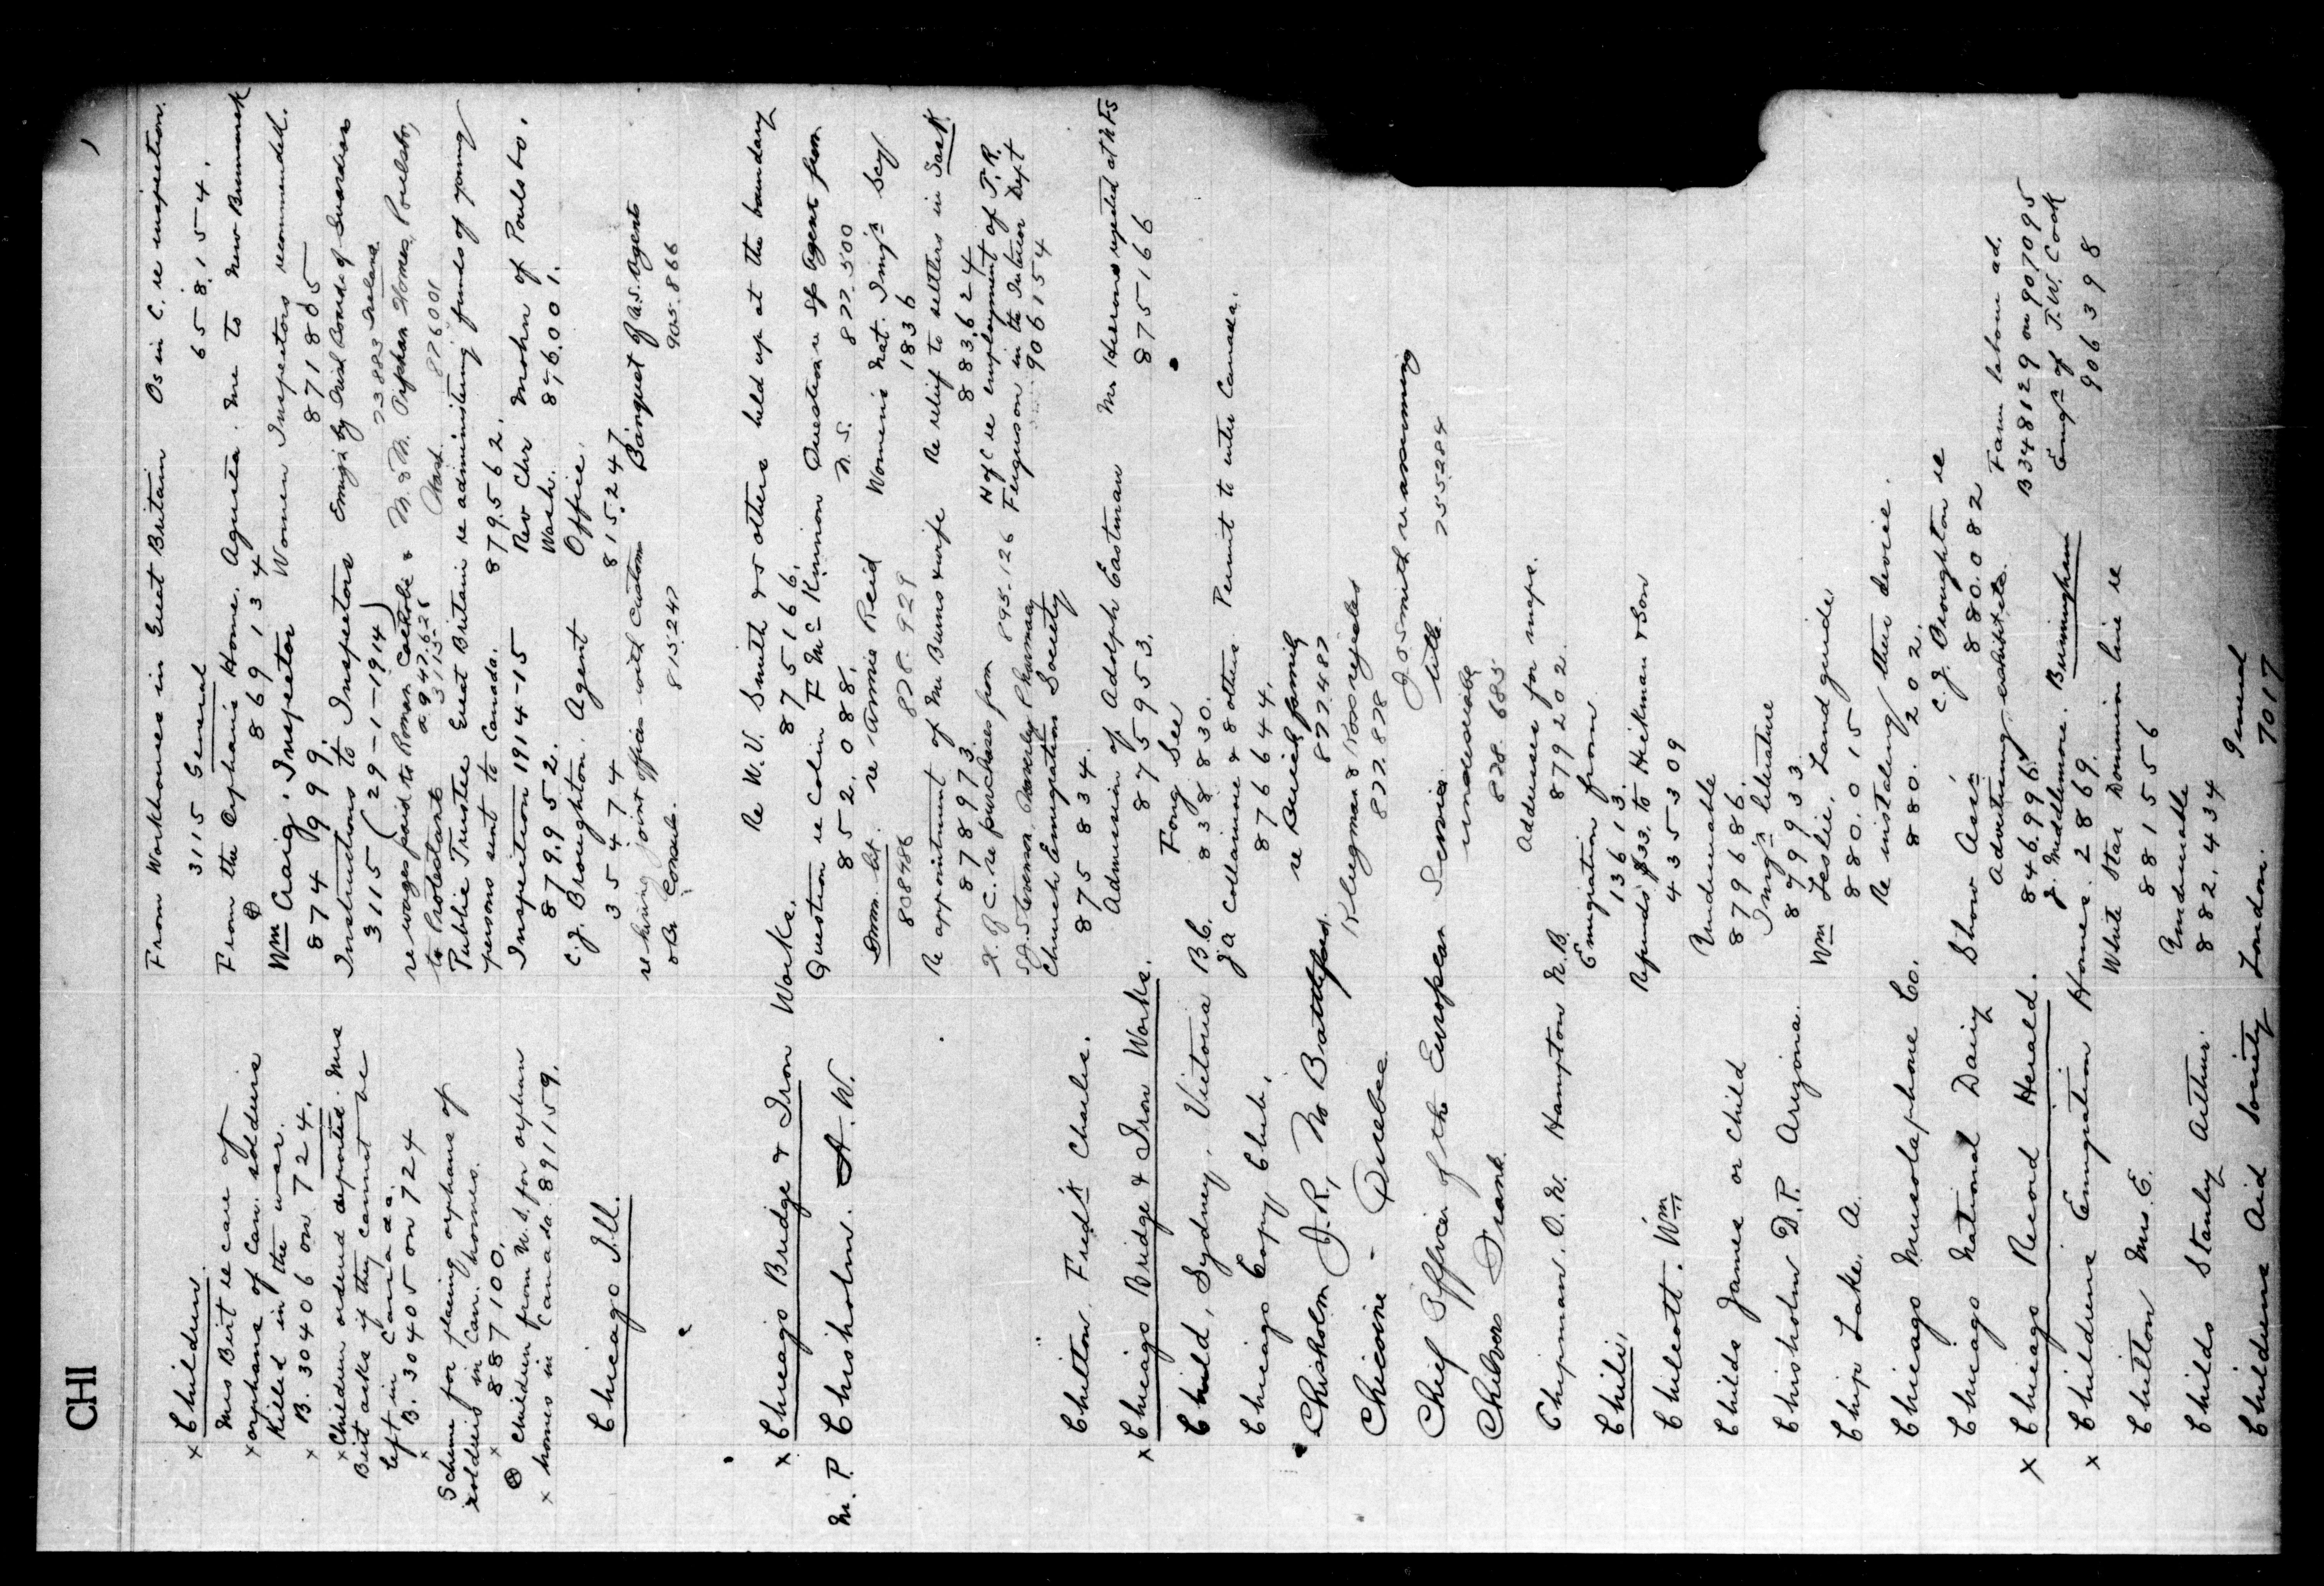 CHI
x Children.
From Workhouse in Great Britain
Os in C. re inspection.
3115 General
658154.
Mrs Birt re care of
x orphans of Can. soldiers
Killed in the war.
x B. 30406 on 724.
From the Orphans Home. Agusta. Me to New Brunswick
869134
Wm Craig, Inspector
874999.
Women Inspectors recommended.
871805
x Children ordered deported. Mrs
Birt asks if they cannot be
left in Canada.
x B. 30405 on 724
Instructions to Inspectors
3115 (29-1-1914)
Emig'n by Irish Boards of Guardians
23883 Ireland
re wages paid to Roman Catholic &
to Protestant 3115
M. & M. Orphan Homes, Poulsbo,
Wash. 876001
Scheme for placing orphans of
soldiers in Can. homes.
x 887100.
Public Trustee Great Britain re administering funds of young
persons sent to Canada. 879562.
⊗ Children from U.S. for orphan
x homes in Canada. 891159.
Inspection 1914-15
879952.
Rev Chr Mohn of Poulsbo,
Wash. 876001.
Chicago Ill.
C.J. Broughton. Agent
35474
Office.
815247
re having joint offices with Customs
or Br. Consul. 815247
Banquet of U.S. Agents
905866
x Chicago Bridge & Iron Works.
Re W.V. Smith & 5 others held up at the boundary
875166.
M.P. Chisholm. A.W.
Question re Colin F McKinnon
852088.
Question re agent from
N.S. 877500
Imm. lit.
808486
re Annie Reid
878929
Womens Nat. Imig'n Scy
1836
Re appointment of Mr Burns & wife
878973
Re relief to settlers in Sask
883624
H. of C. re purchases from
895126
H of C re employment of T.R.
Ferguson in the Interior Dept
906154
Chilton, Fredk Charles.
Church Emigration Society
875834.
x Chicago Bridge & Iron Works.
Admission of Adolph Eastman
875953.
Mr Herrons rejected at N Fs
875166
Child, Sydney, Victoria B.C.
Fong See
838830.
Chicago Copy Club.
J A Collarmore & 8 others. Permit to enter Canada.
876644.
Chisholm J.R. No Battleford.
re family
877487
Chicoine - Quebec
Klugman & Ross rejected
877878
Chief Officer of the European Service.
J. O. Smith re assuming
title 755284
Chilvor Frank
undesirable
878685
Chipman. O.W. Hampton N.B.
Addresses for maps.
879202.
Chili.
Emigration from
13613.
Chilcott. Wm
Refunds $33. to Hickman & Son
435309
Childs James or Child
Undesirable
879686.
Chisholm D.P. Arizona.
Imig'n literature
879933
Chip Lake. A.
Wm Leslie. Land guide
880015
Chicago Musolaphone Co.
Re installing their device.
880202.
Chicago National Dairy Show Ass'n
C.J. Broughton re
880082
x Chicago Record Herald.
Advertising exhibits.
846996.
Farm labour ad.
B348129 on 907095
x Childrens Emigration Homes.
J. Middlemore. Birmingham
2869.
Emig'n of T.W. Cook
906398
Chilton Mrs. E.
White Star Dominion line re
881556
Childs Stanley Arthur.
Undesirable
882434
Childrens Aid Society London.
General
7017